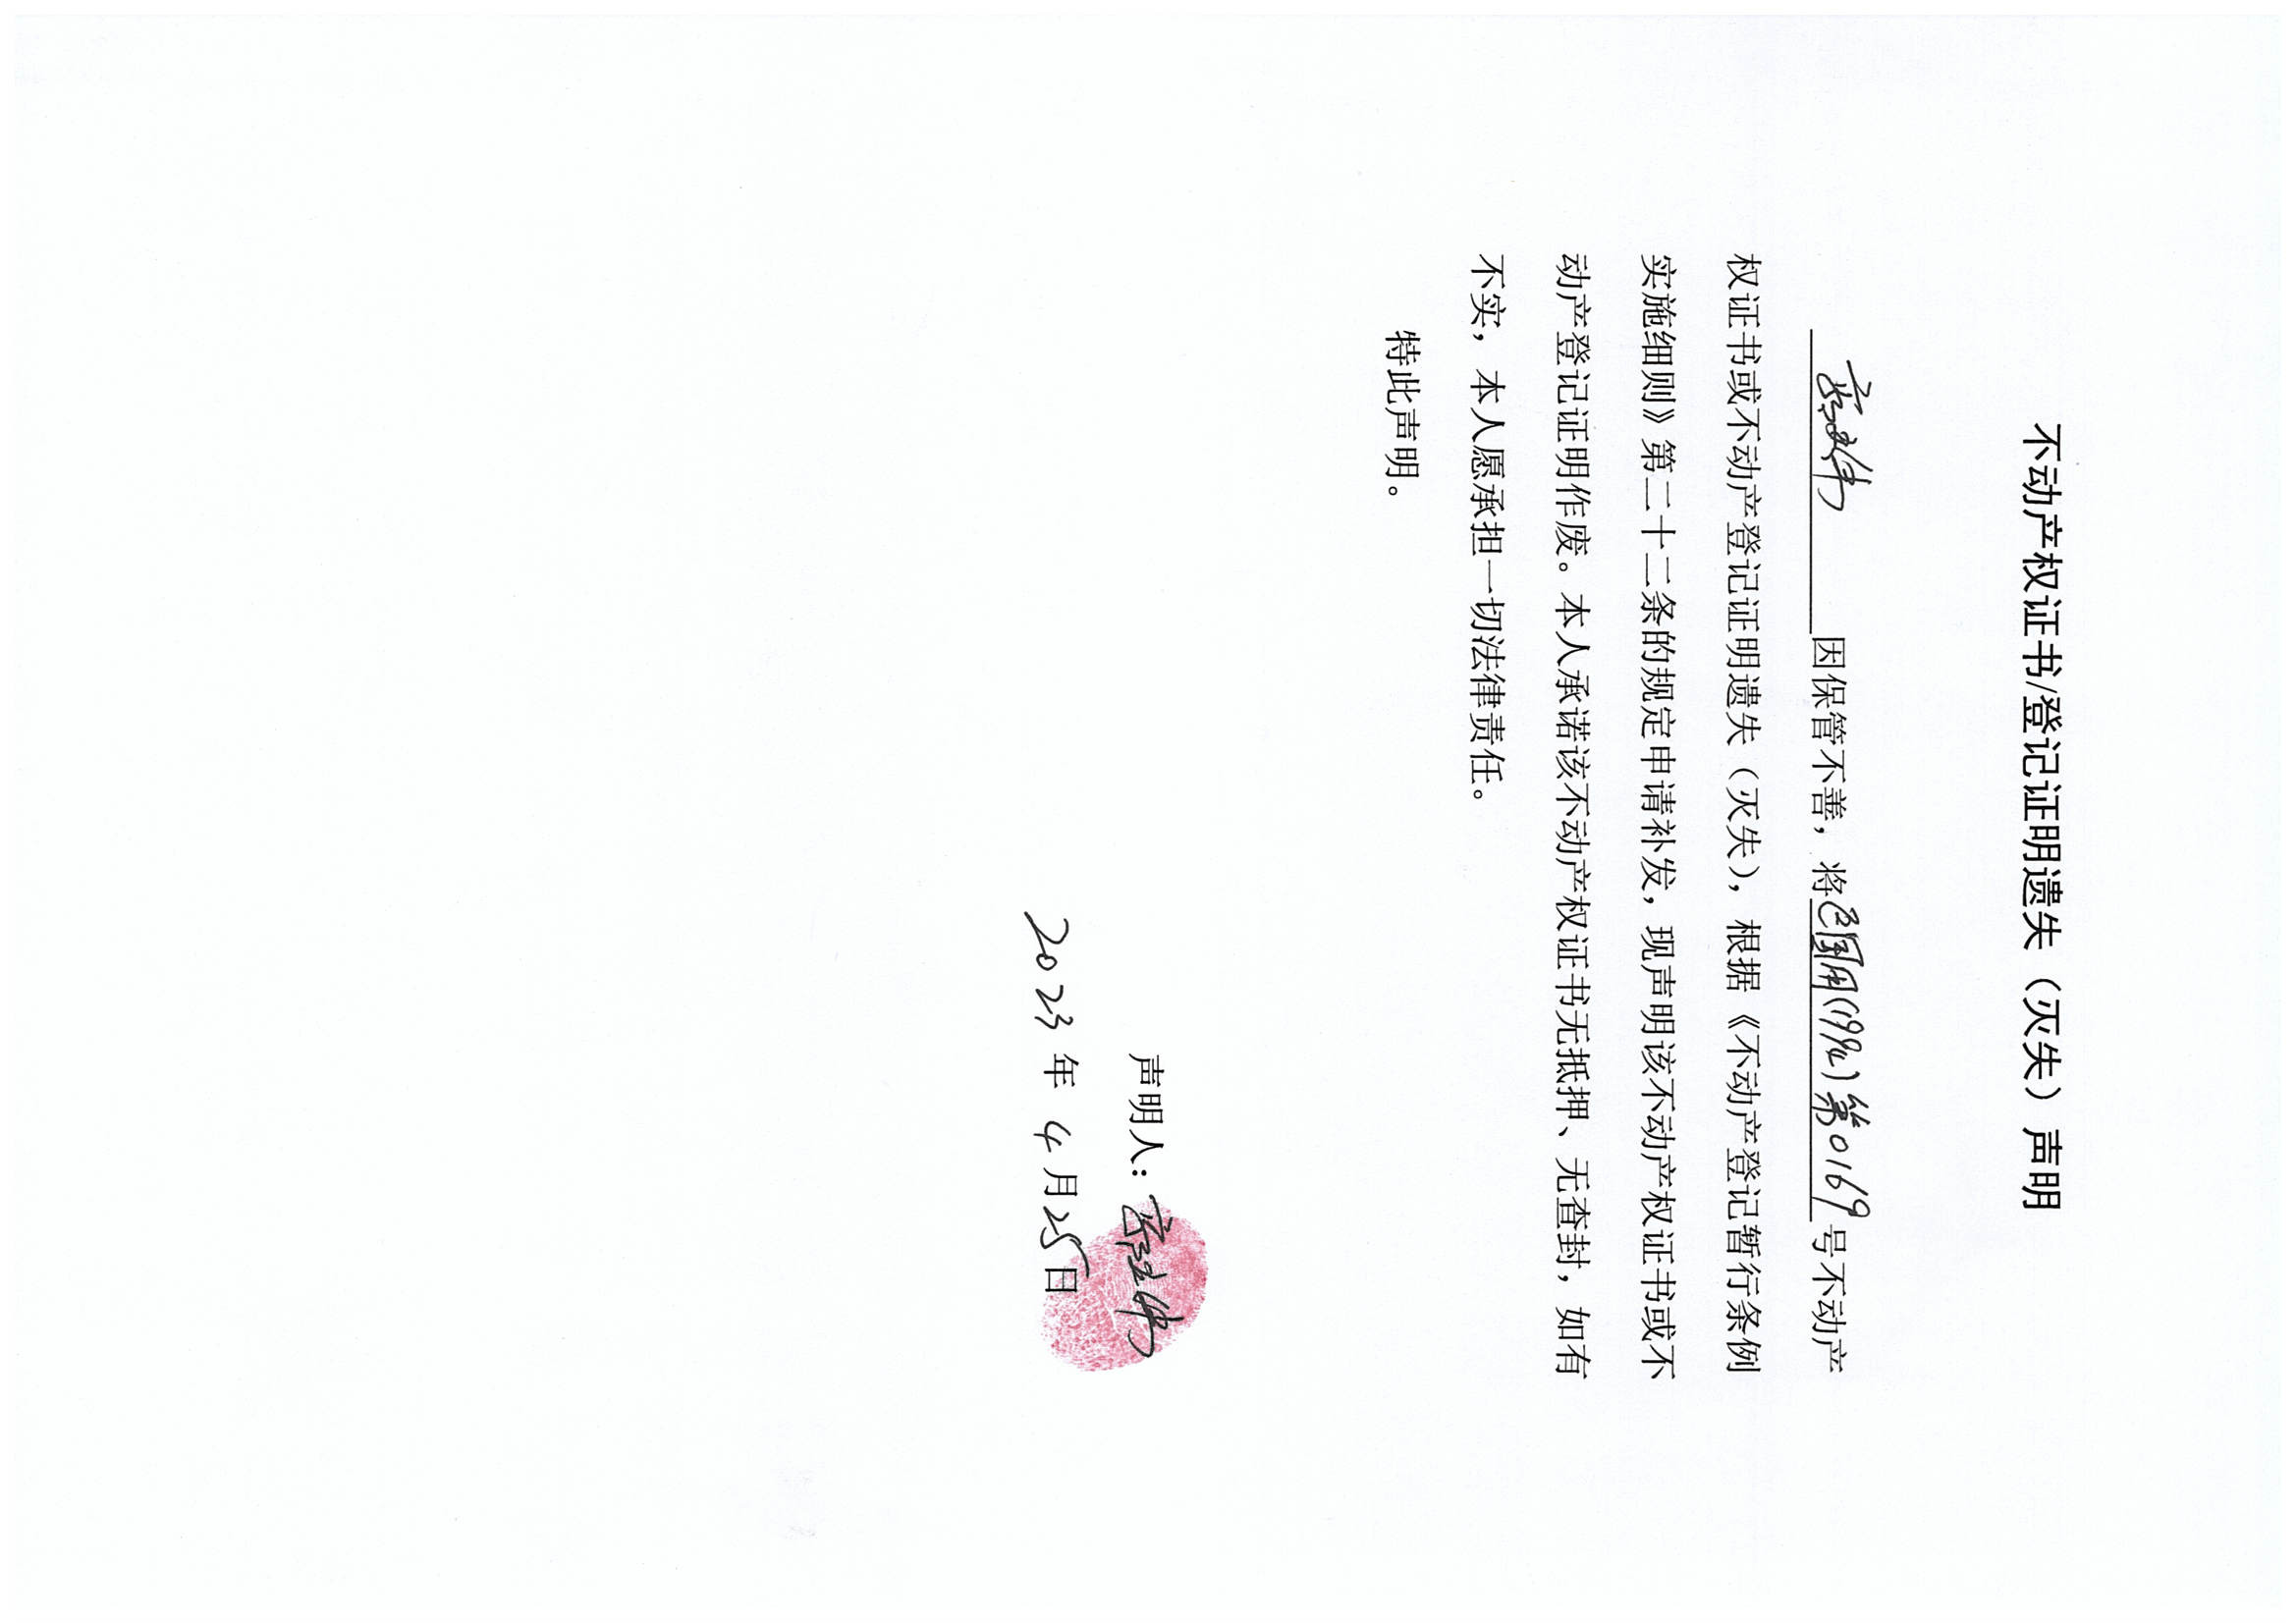 不动产权证书/登记证明遗失（灭失）声明
因保管不善，将国用(1994)第0169号不动产
权证书或不动产登记证明遗失（灭失），根据《不动产登记暂行条例
实施细则》第二十二条的规定申请补发，现声明该不动产权证书或不
动产登记证明作废。本人承诺该不动产权证书无抵押、无查封，如有
不实，本人愿承担一切法律责任。
特此声明。
声明人：
2023年4月25日